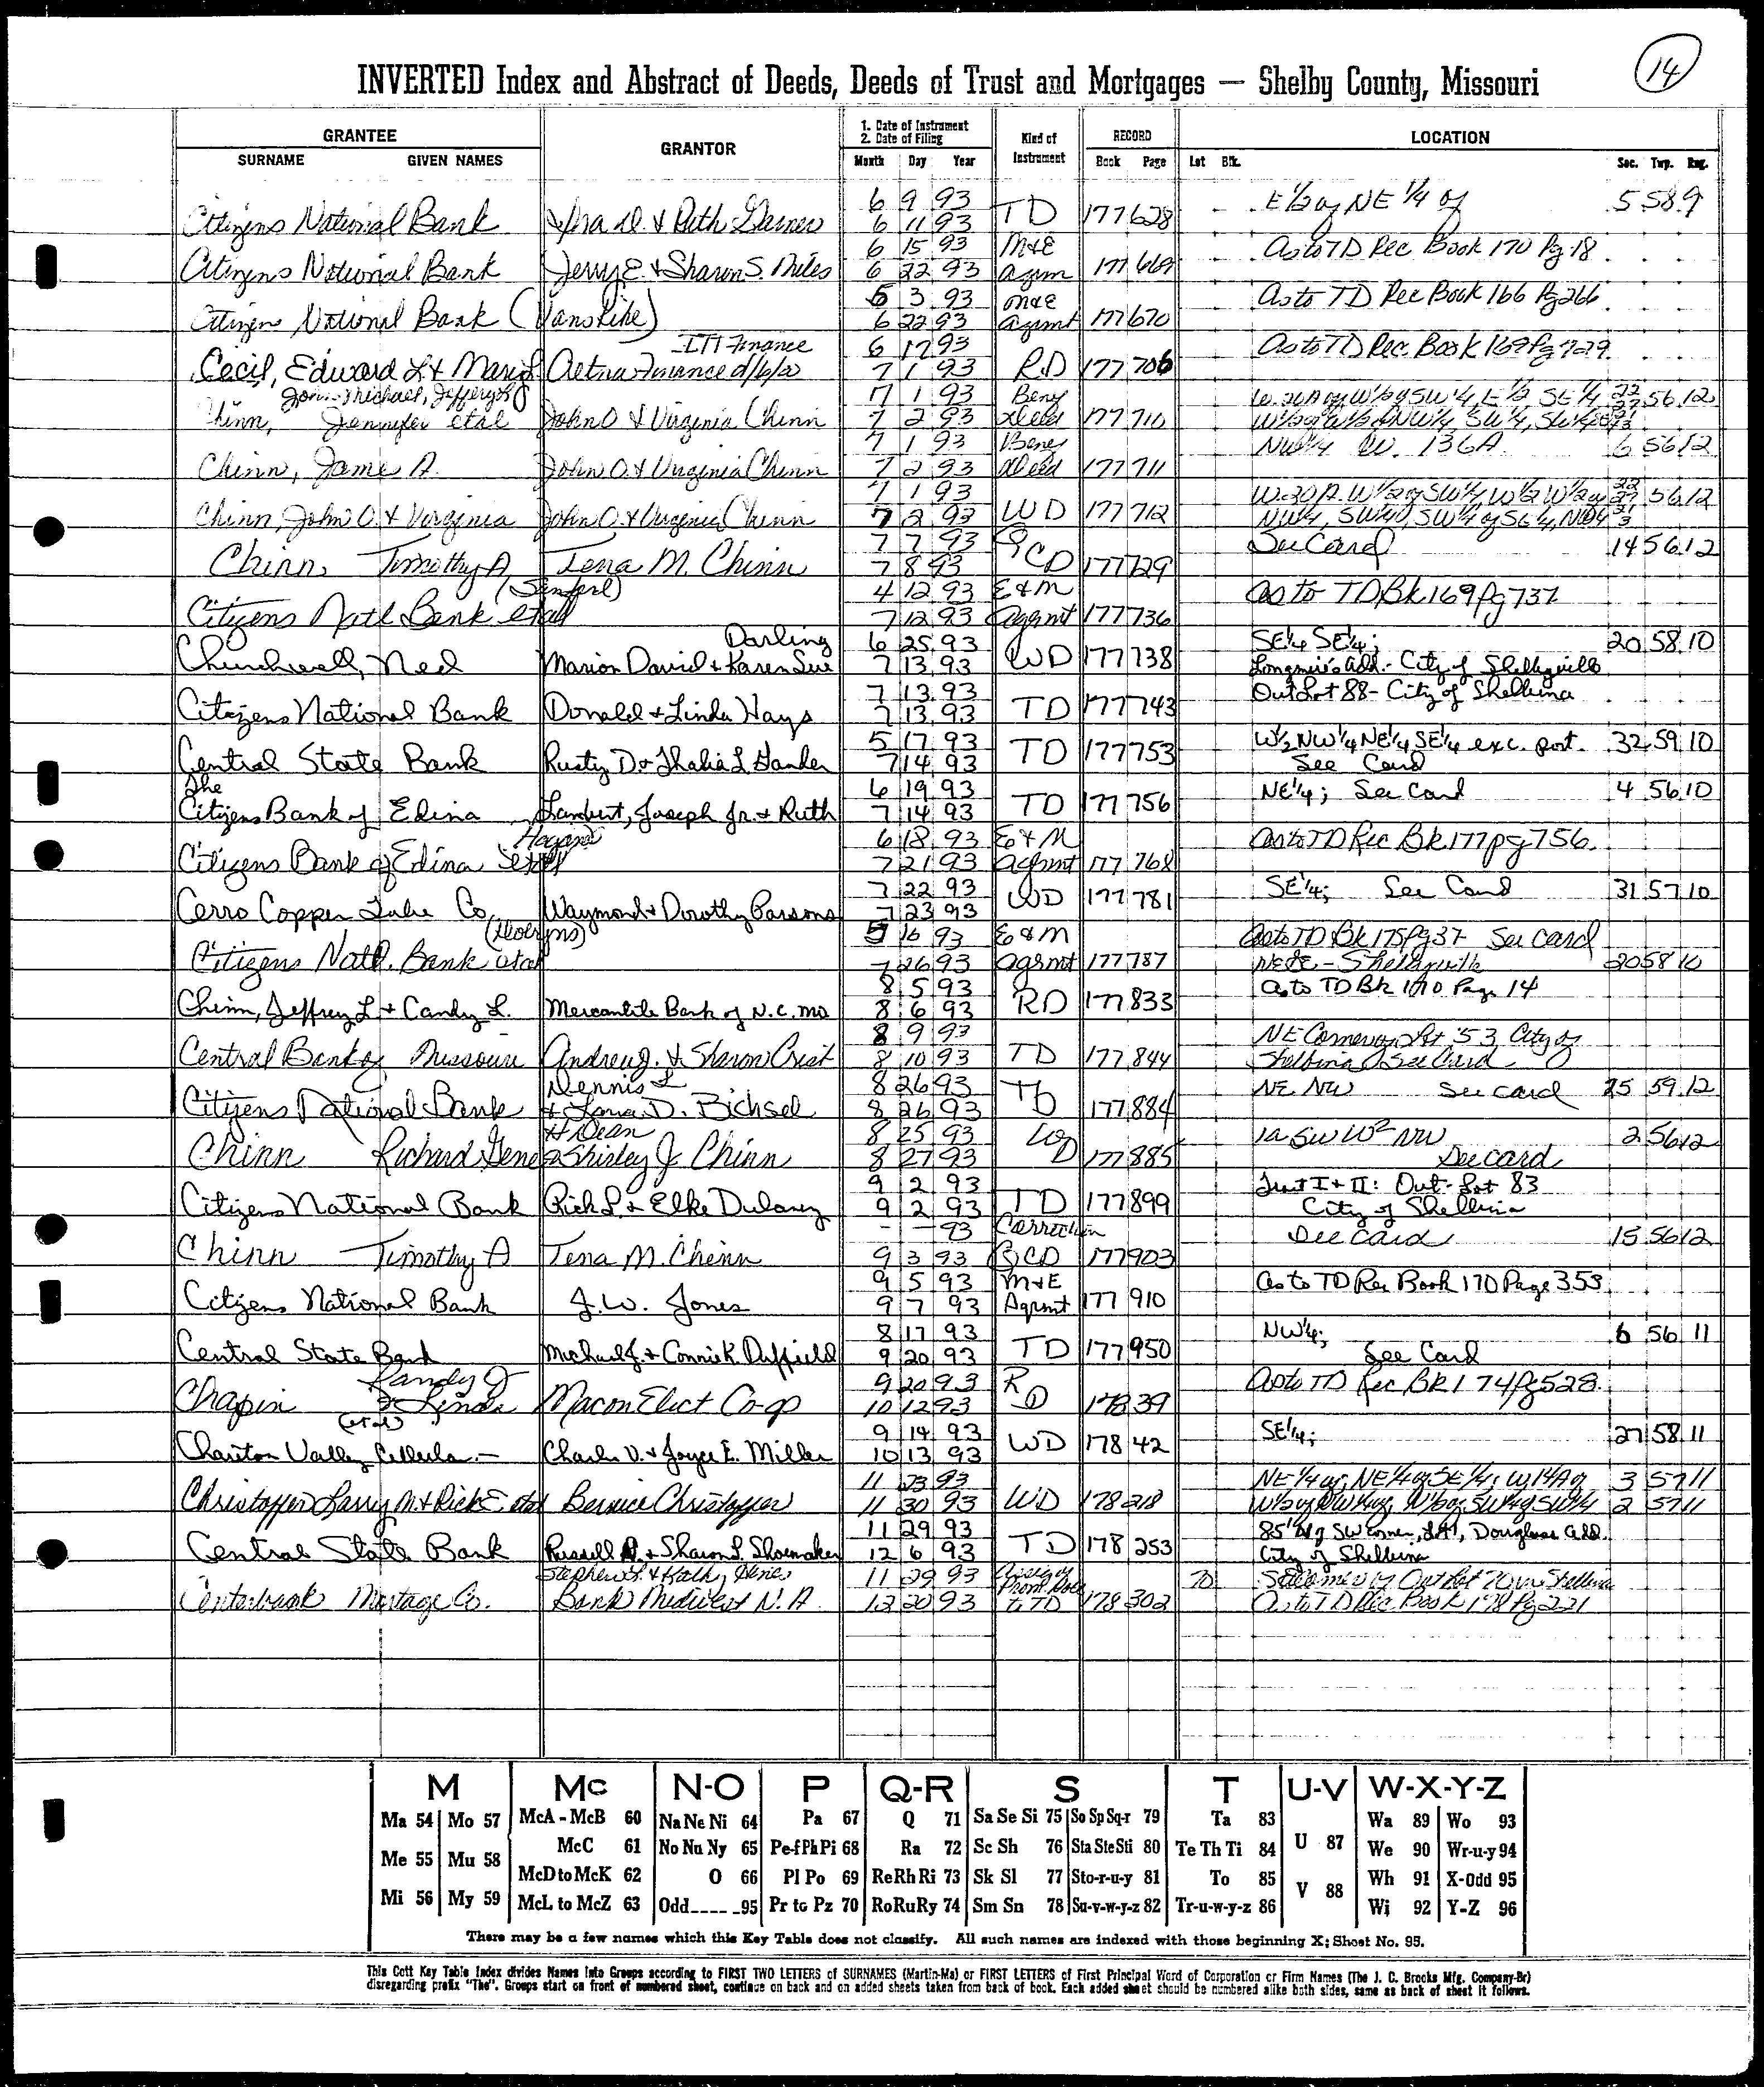 14
INVERTED Index and Abstract of Deeds, Deeds of Trust and Mortgages — Shelby County, Missouri
GRANTEE GRANTOR 1. Date of Instrument 2. Date of Filing Kind of Instrument RECORD LOCATION
SURNAME GIVEN NAMES Month Day Year Book Page Lot Blk. Sec. Twp. Rng.
6 9 93 E 1/2 of NE 1/4 of 5 58 9
Citizens National Bank & Ruth 6 11 93 TD 177 628
6 15 93 M&E As to TD Rec Book 170 Pg 18
Citizens National Bank Jerry E. & Sharon S. 6 22 93 Agrm 177 669
5 3 93 M&E As to TD Rec Book 166 Pg 266
Citizens National Bank (Vanskike) 6 22 93 Agrmt 177 670
ITT Finance 6 17 93 As to TD Rec. Book 169 Pg 729
Cecil, Edward L & Mary Aetna Finance d/b/a 7 1 93 RD 177 706
Jon Michael, Jeffery 7 1 93 Beny W. 26A of W 1/2 of SW 1/4, E 1/2, SE 1/4 56 12
Chinn, Jennifer etal John O & Virginia Chinn 7 2 93 Deed 177 710
7 1 93 Beny NW 1/4 136A 6 56 12
Chinn, Jame A. John O. & Virginia Chinn 7 2 93 Deed 177 711
7 1 93 W. 30 A. W 1/2 of SW 1/4, W 1/2 W 1/2 of 56 12
Chinn, John O. & Virginia John O. & Virginia Chinn 7 2 93 WD 177 712 NW 1/4, SW 1/4, SW 1/4 of SE 1/4
7 7 93 See Card 14 56 12
Chinn Timothy A Tena M. Chinn 7 8 93 QCD 177 729
4 12 93 E & M As to TD Bk 169 Pg 737
Citizens Natl Bank etal 7 12 93 Agrmt 177 736
Darling 6 25 93 SE 1/4 SE 1/4; 20 58 10
Churchwell, Ned Marion David & Karen Sue 7 13 93 WD 177 738 Longmire's Add. - City of Shelbyville
7 13 93 Out Lot 88 - City of Shelbina
Citizens National Bank Donald & Linda Hays 7 13 93 TD 177 743
5 17 93 W 1/2 NW 1/4 NE 1/4 SE 1/4 exc. part. 32 59 10
Central State Bank Rusty D & Thalia L 7 14 93 TD 177 753 See Card
The 6 19 93 NE 1/4; See Card 4 56 10
Citizens Bank of Edina Lambert, Joseph Jr. & Ruth 7 14 93 TD 177 756
6 18 93 E & M As to TD Rec Bk 177 pg 756
Citizens Bank of Edina 7 21 93 Agrmt 177 768
7 22 93 SE 1/4; See Card 31 57 10
Cerro Copper Tube Co. Waymond & Dorothy Parsons 7 23 93 WD 177 781
5 16 93 E & M As to TD Bk 175 Pg 37 See Card
Citizens Natl. Bank etal 7 26 93 Agrmt 177 787 NE SE - Shelbyville 20 58 10
8 5 93 As to TD Bk 170 Page 14
Chinn, Jeffrey L. & Candy L. Mercantile Bank of N.C. Mo 8 6 93 RD 177 833
8 9 93 NE Corner of Lot 53, City of
Central Bank of Missouri Andrew J. & Sharon Crist 8 10 93 TD 177 844 Shelbina See Card
Dennis L 8 26 93 NE NW See card 25 59 12
Citizens National Bank & Lana D. Bichsel 8 26 93 TD 177 884
H Dean 8 25 93 1a SW W2 NW 2 56 12
Chinn Richard Gene & Shirley J. Chinn 8 27 93 WD 177 885 See card
9 2 93 Tract I & II: Out-Lot 83
Citizens National Bank Rick L. & Elke Dulaney 9 2 93 TD 177 899 City of Shelbina
- - 93 Correction See card 15 56 12
Chinn Timothy A Tena M. Chinn 9 3 93 QCD 177 903
9 5 93 M&E As to TD Rec Book 170 Page 353
Citizens National Bank J.W. Jones 9 7 93 Agrmt 177 910
8 17 93 NW 1/4; 6 56 11
Central State Bank Michael J. & Connie K. Duffield 9 20 93 TD 177 950 See Card
Randy J 9 20 93 As to TD Rec Bk 174 Pg 528
Chapin & Linda Macon Elect Co-op 10 12 93 RD 178 39
(etal) 9 14 93 SE 1/4; 27 58 11
Chariton Valley Cellular - Charles V. & Joyce E. Miller 10 13 93 WD 178 42
11 23 93 NE 1/4 of NE 1/4 of SE 1/4; W 14A of 3 57 11
Christoffer Larry M. & Rick E. etal Bernice Christoffer 11 30 93 WD 178 218 W 1/2 of NW 1/4 of, W 1/2 of SW 1/4 of SW 1/4 2 57 11
11 29 93 85' of SW corner, Lot 1, Douglass Add.
Central State Bank Russell D. & Sharon L. Shoemaker 12 6 93 TD 178 253 City of Shelbina
Stephen & Kathy 11 29 93 Out Lot 70 in Shelbina
Centerbank Mortage Co. Bank Midwest N.A. 12 20 93 to TD 178 302 As to TD Rec. Book 178 Pg 221
M Mc N-O P Q-R S T U-V W-X-Y-Z
Ma 54 Mo 57 McA - McB 60 Na Ne Ni 64 Pa 67 Q 71 Sa Se Si 75 So Sp Sq-r 79 Ta 83 U 87 Wa 89 Wo 93
Me 55 Mu 58 McC 61 No Nu Ny 65 Pe-f Ph Pi 68 Ra 72 Sc Sh 76 Sta Ste Sti 80 Te Th Ti 84 We 90 Wr-u-y 94
McD to McK 62 O 66 Pl Po 69 Re Rh Ri 73 Sk Sl 77 Sto-r-u-y 81 To 85 V 88 Wh 91 X-Odd 95
Mi 56 My 59 McL to McZ 63 Odd---- -95 Pr to Pz 70 Ro Ru Ry 74 Sm Sn 78 Su-v-w-y-z 82 Tr-u-w-y-z 86 Wi 92 Y-Z 96
There may be a few names which this Key Table does not classify. All such names are indexed with those beginning X; Sheet No. 95.
This Cott Key Table Index divides Names into Groups according to FIRST TWO LETTERS of SURNAMES (Martin-Ma) or FIRST LETTERS of First Principal Word of Corporation or Firm Names (The J. C. Brooks Mfg. Company-Br)
disregarding prefix "The". Groups start on front of numbered sheet, continue on back and on added sheets taken from back of book. Each added sheet should be numbered alike both sides, same as back of sheet it follows.